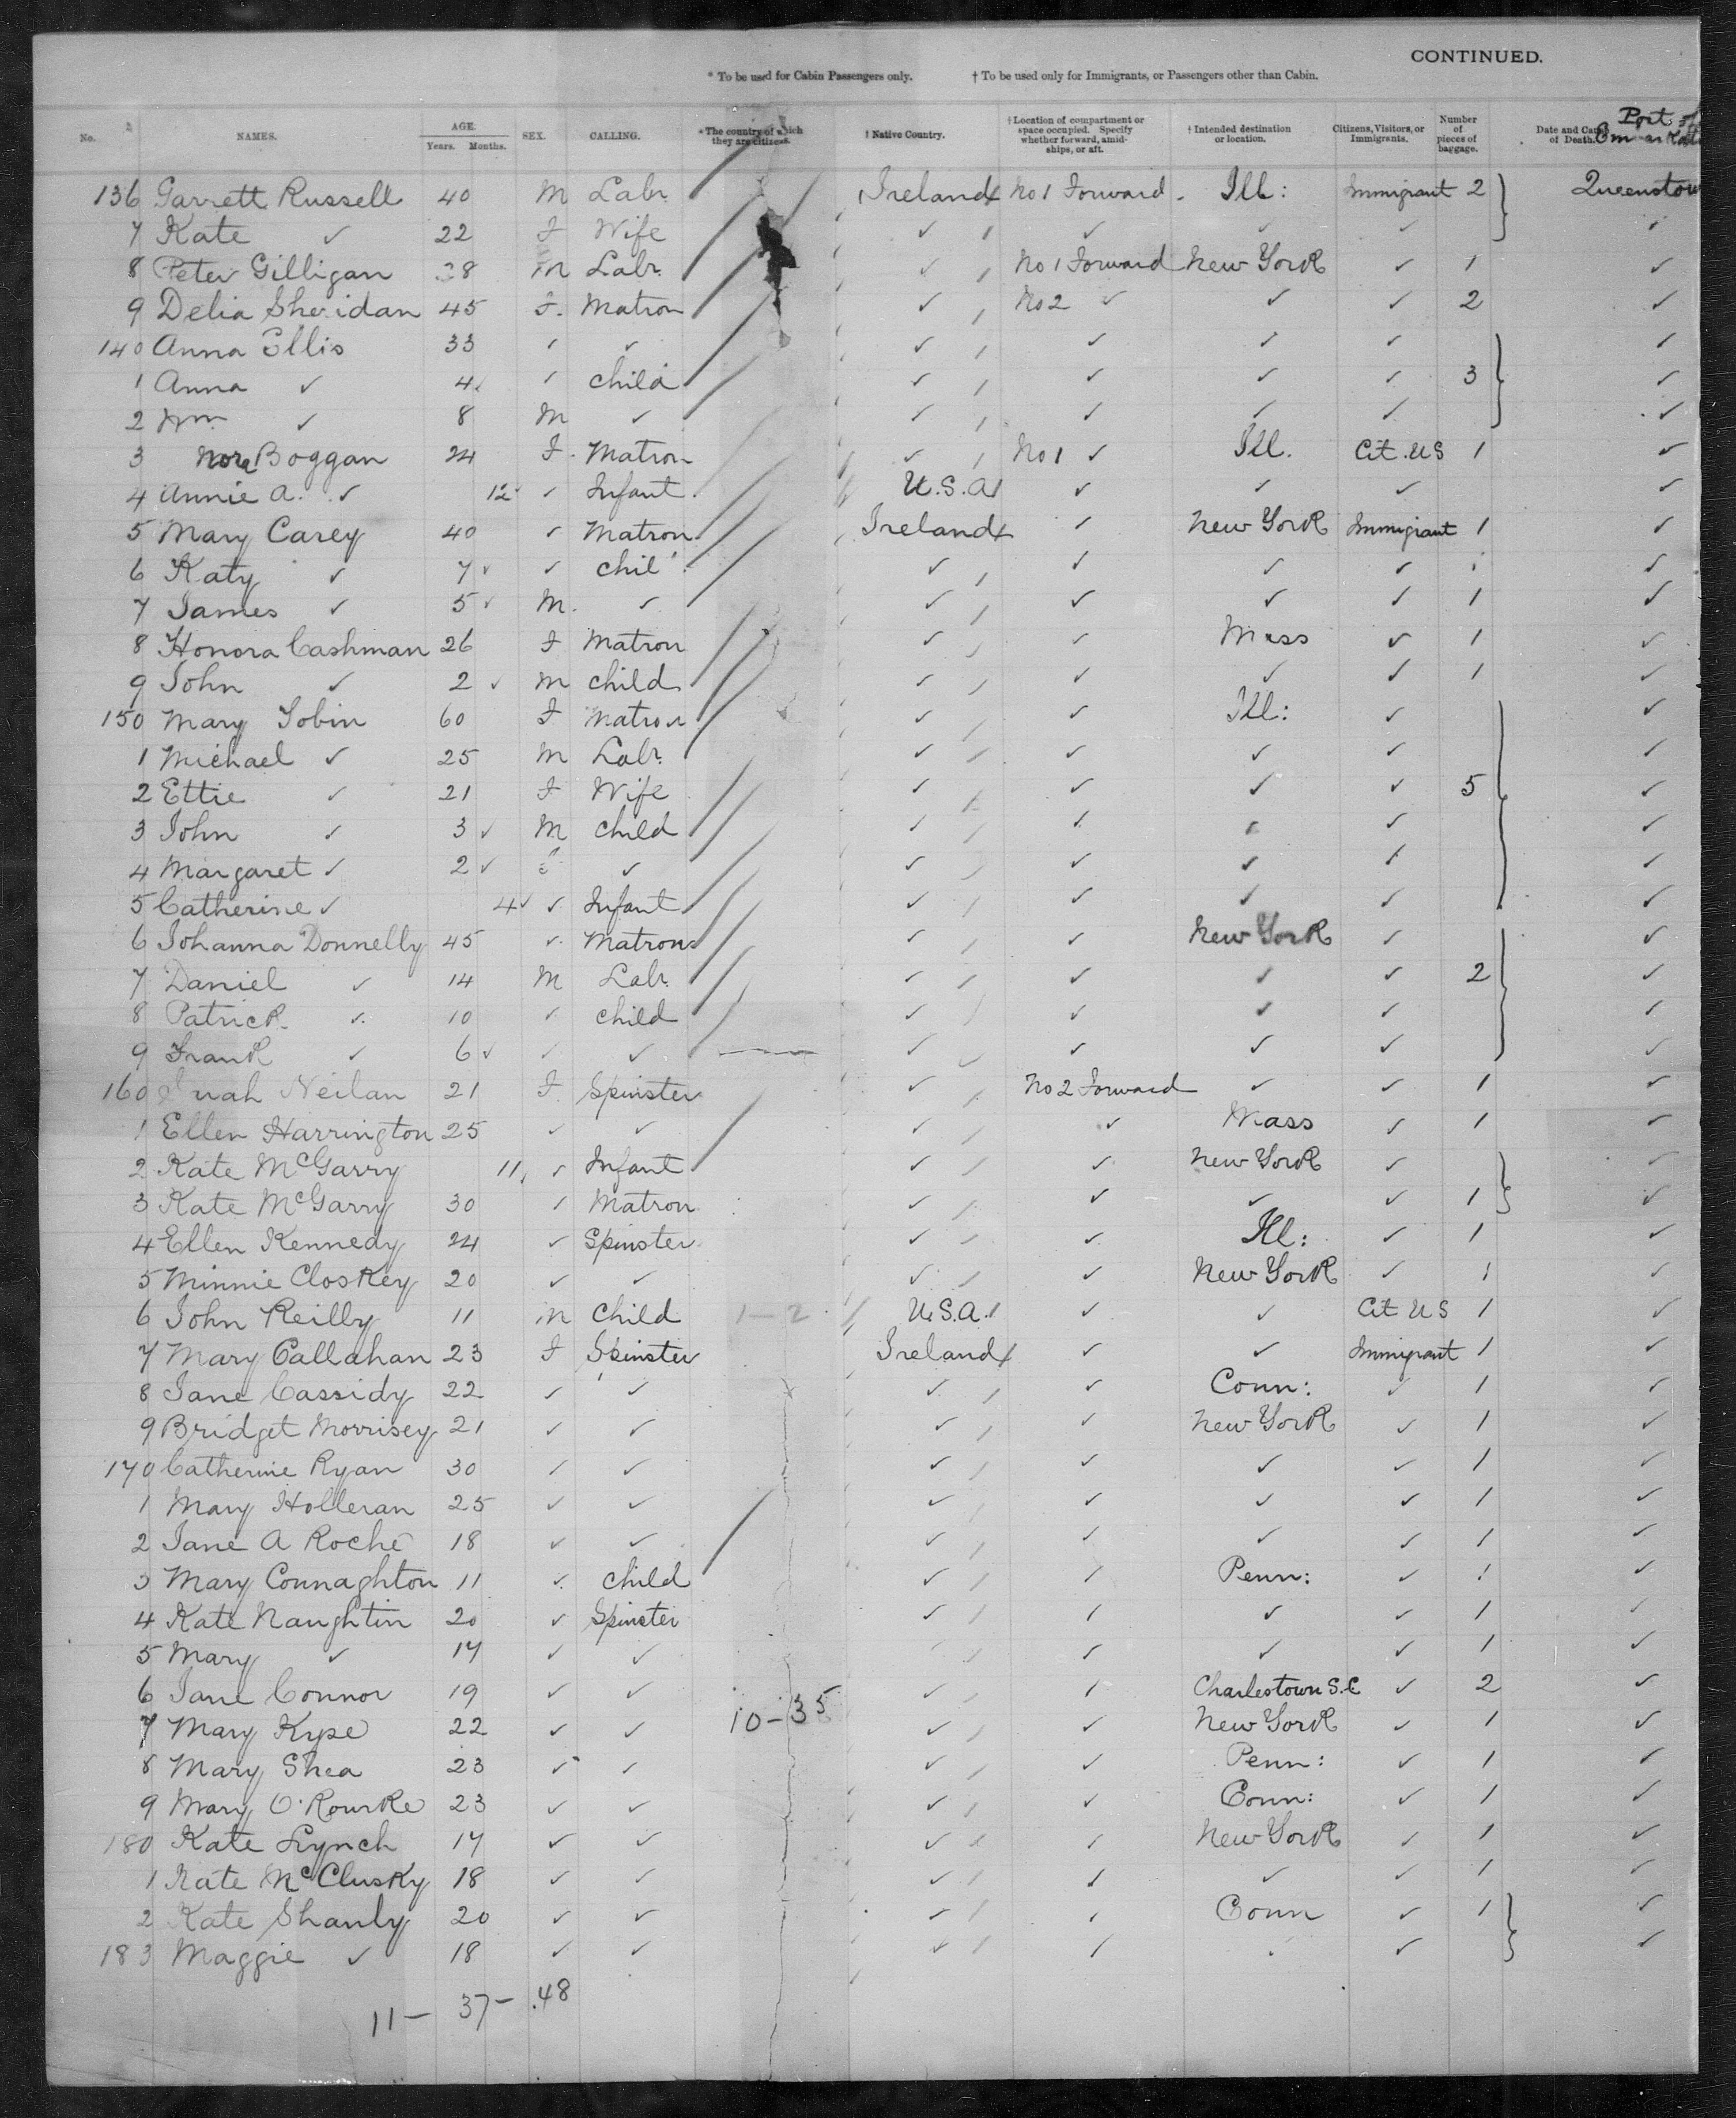 CONTINUED.
* To be used for Cabin Passengers only. † To be used only for Immigrants, or Passengers other than Cabin.
No. NAMES. AGE. Years. Months. SEX. CALLING. * The country of which they are citizens. † Native Country. † Location of compartment or space occupied. Specify whether forward, amidships, or aft. † Intended destination or location. Citizens, Visitors, or Immigrants. Number of pieces of baggage. Date and Cause of Death. Port of
136 Garrett Russell 40 M Labr. Ireland No 1 Forward Ill: Immigrant 2 Queenstow
7 Kate ✓ 22 F Wife ✓ ✓ ✓ ✓ ✓
8 Peter Gilligan 28 M Labr. ✓ No 1 Forward New York ✓ 1 ✓
9 Delia Sheridan 45 F. Matron ✓ No 2 ✓ ✓ ✓ 2 ✓
140 Anna Ellis 33 ✓ ✓ ✓ ✓ ✓ ✓ ✓
1 Anna ✓ 4 ✓ child ✓ ✓ ✓ ✓ 3 ✓
2 Wm ✓ 8 M ✓ ✓ ✓ ✓ ✓ ✓
3 Nora Boggan 24 F. Matron ✓ No 1 ✓ Ill. Cit. US 1 ✓
4 Annie A. ✓ 12 ✓ Infant U.S.A ✓ ✓ ✓ ✓
5 Mary Carey 40 ✓ Matron Ireland ✓ New York Immigrant 1 ✓
6 Katy ✓ 7 ✓ ✓ chil ✓ ✓ ✓ ✓ 1 ✓
7 James ✓ 5 ✓ M. ✓ ✓ ✓ ✓ ✓ 1 ✓
8 Honora Cashman 26 F Matron ✓ ✓ Mass ✓ 1 ✓
9 John ✓ 2 ✓ M child ✓ ✓ ✓ ✓ 1 ✓
150 Mary Tobin 60 F Matron ✓ ✓ Ill: ✓ ✓
1 Michael ✓ 25 M Labr. ✓ ✓ ✓ ✓ ✓
2 Ettie ✓ 21 F Wife ✓ ✓ ✓ ✓ 5 ✓
3 John ✓ 3 ✓ M child ✓ ✓ ✓ ✓ ✓
4 Margaret ✓ 2 ✓ ✓ ✓ ✓ ✓ ✓ ✓
5 Catherine ✓ 4 ✓ ✓ Infant ✓ ✓ ✓ ✓ ✓
6 Johanna Donnelly 45 ✓ Matron ✓ ✓ New York ✓ ✓
7 Daniel ✓ 14 M Labr. ✓ ✓ ✓ ✓ 2 ✓
8 Patrick ✓ 10 ✓ child ✓ ✓ ✓ ✓ ✓
9 Frank ✓ 6 ✓ ✓ ✓ ✓ ✓ ✓ ✓ ✓
160 Neilan 21 F Spinster ✓ No 2 Forward ✓ ✓ 1 ✓
1 Ellen Harrington 25 ✓ ✓ ✓ ✓ Mass ✓ 1 ✓
2 Kate McGarry 11 ✓ Infant ✓ ✓ New York ✓ ✓
3 Kate McGarry 30 ✓ Matron ✓ ✓ ✓ ✓ 1 ✓
4 Ellen Kennedy 24 ✓ Spinster ✓ ✓ Ill: ✓ 1 ✓
5 Minnie Closkey 20 ✓ ✓ ✓ ✓ New York ✓ 1 ✓
6 John Reilly 11 M child 1-2 U.S.A. ✓ ✓ Cit US 1 ✓
7 Mary Callahan 23 F Spinster Ireland ✓ ✓ Immigrant 1 ✓
8 Jane Cassidy 22 ✓ ✓ ✓ ✓ Conn: ✓ 1 ✓
9 Bridget Morrisey 21 ✓ ✓ ✓ ✓ New York ✓ 1 ✓
170 Catherine Ryan 30 ✓ ✓ ✓ ✓ ✓ ✓ 1 ✓
1 Mary Holleran 25 ✓ ✓ ✓ ✓ ✓ ✓ 1 ✓
2 Jane A Roche 18 ✓ ✓ ✓ ✓ ✓ ✓ 1 ✓
3 Mary Connaghton 11 ✓ child ✓ ✓ Penn: ✓ 1 ✓
4 Kate Naughtin 20 ✓ Spinster ✓ ✓ ✓ ✓ 1 ✓
5 Mary ✓ 17 ✓ ✓ ✓ ✓ ✓ 1 ✓
6 Jane Connor 19 ✓ ✓ ✓ ✓ Charlestown S.C ✓ 2 ✓
7 Mary Kype 22 ✓ ✓ 10-35 ✓ ✓ New York ✓ 1 ✓
8 Mary Shea 23 ✓ ✓ ✓ ✓ Penn: ✓ 1 ✓
9 Mary O'Rourke 23 ✓ ✓ ✓ ✓ Conn: ✓ 1 ✓
180 Kate Lynch 17 ✓ ✓ ✓ ✓ New York ✓ 1 ✓
1 Kate McClusky 18 ✓ ✓ ✓ ✓ ✓ ✓ 1 ✓
2 Kate Shanly 20 ✓ ✓ ✓ ✓ Conn ✓ 1 ✓
183 Maggie ✓ 18 ✓ ✓ ✓ ✓ ✓ ✓
11 - 37 - 48